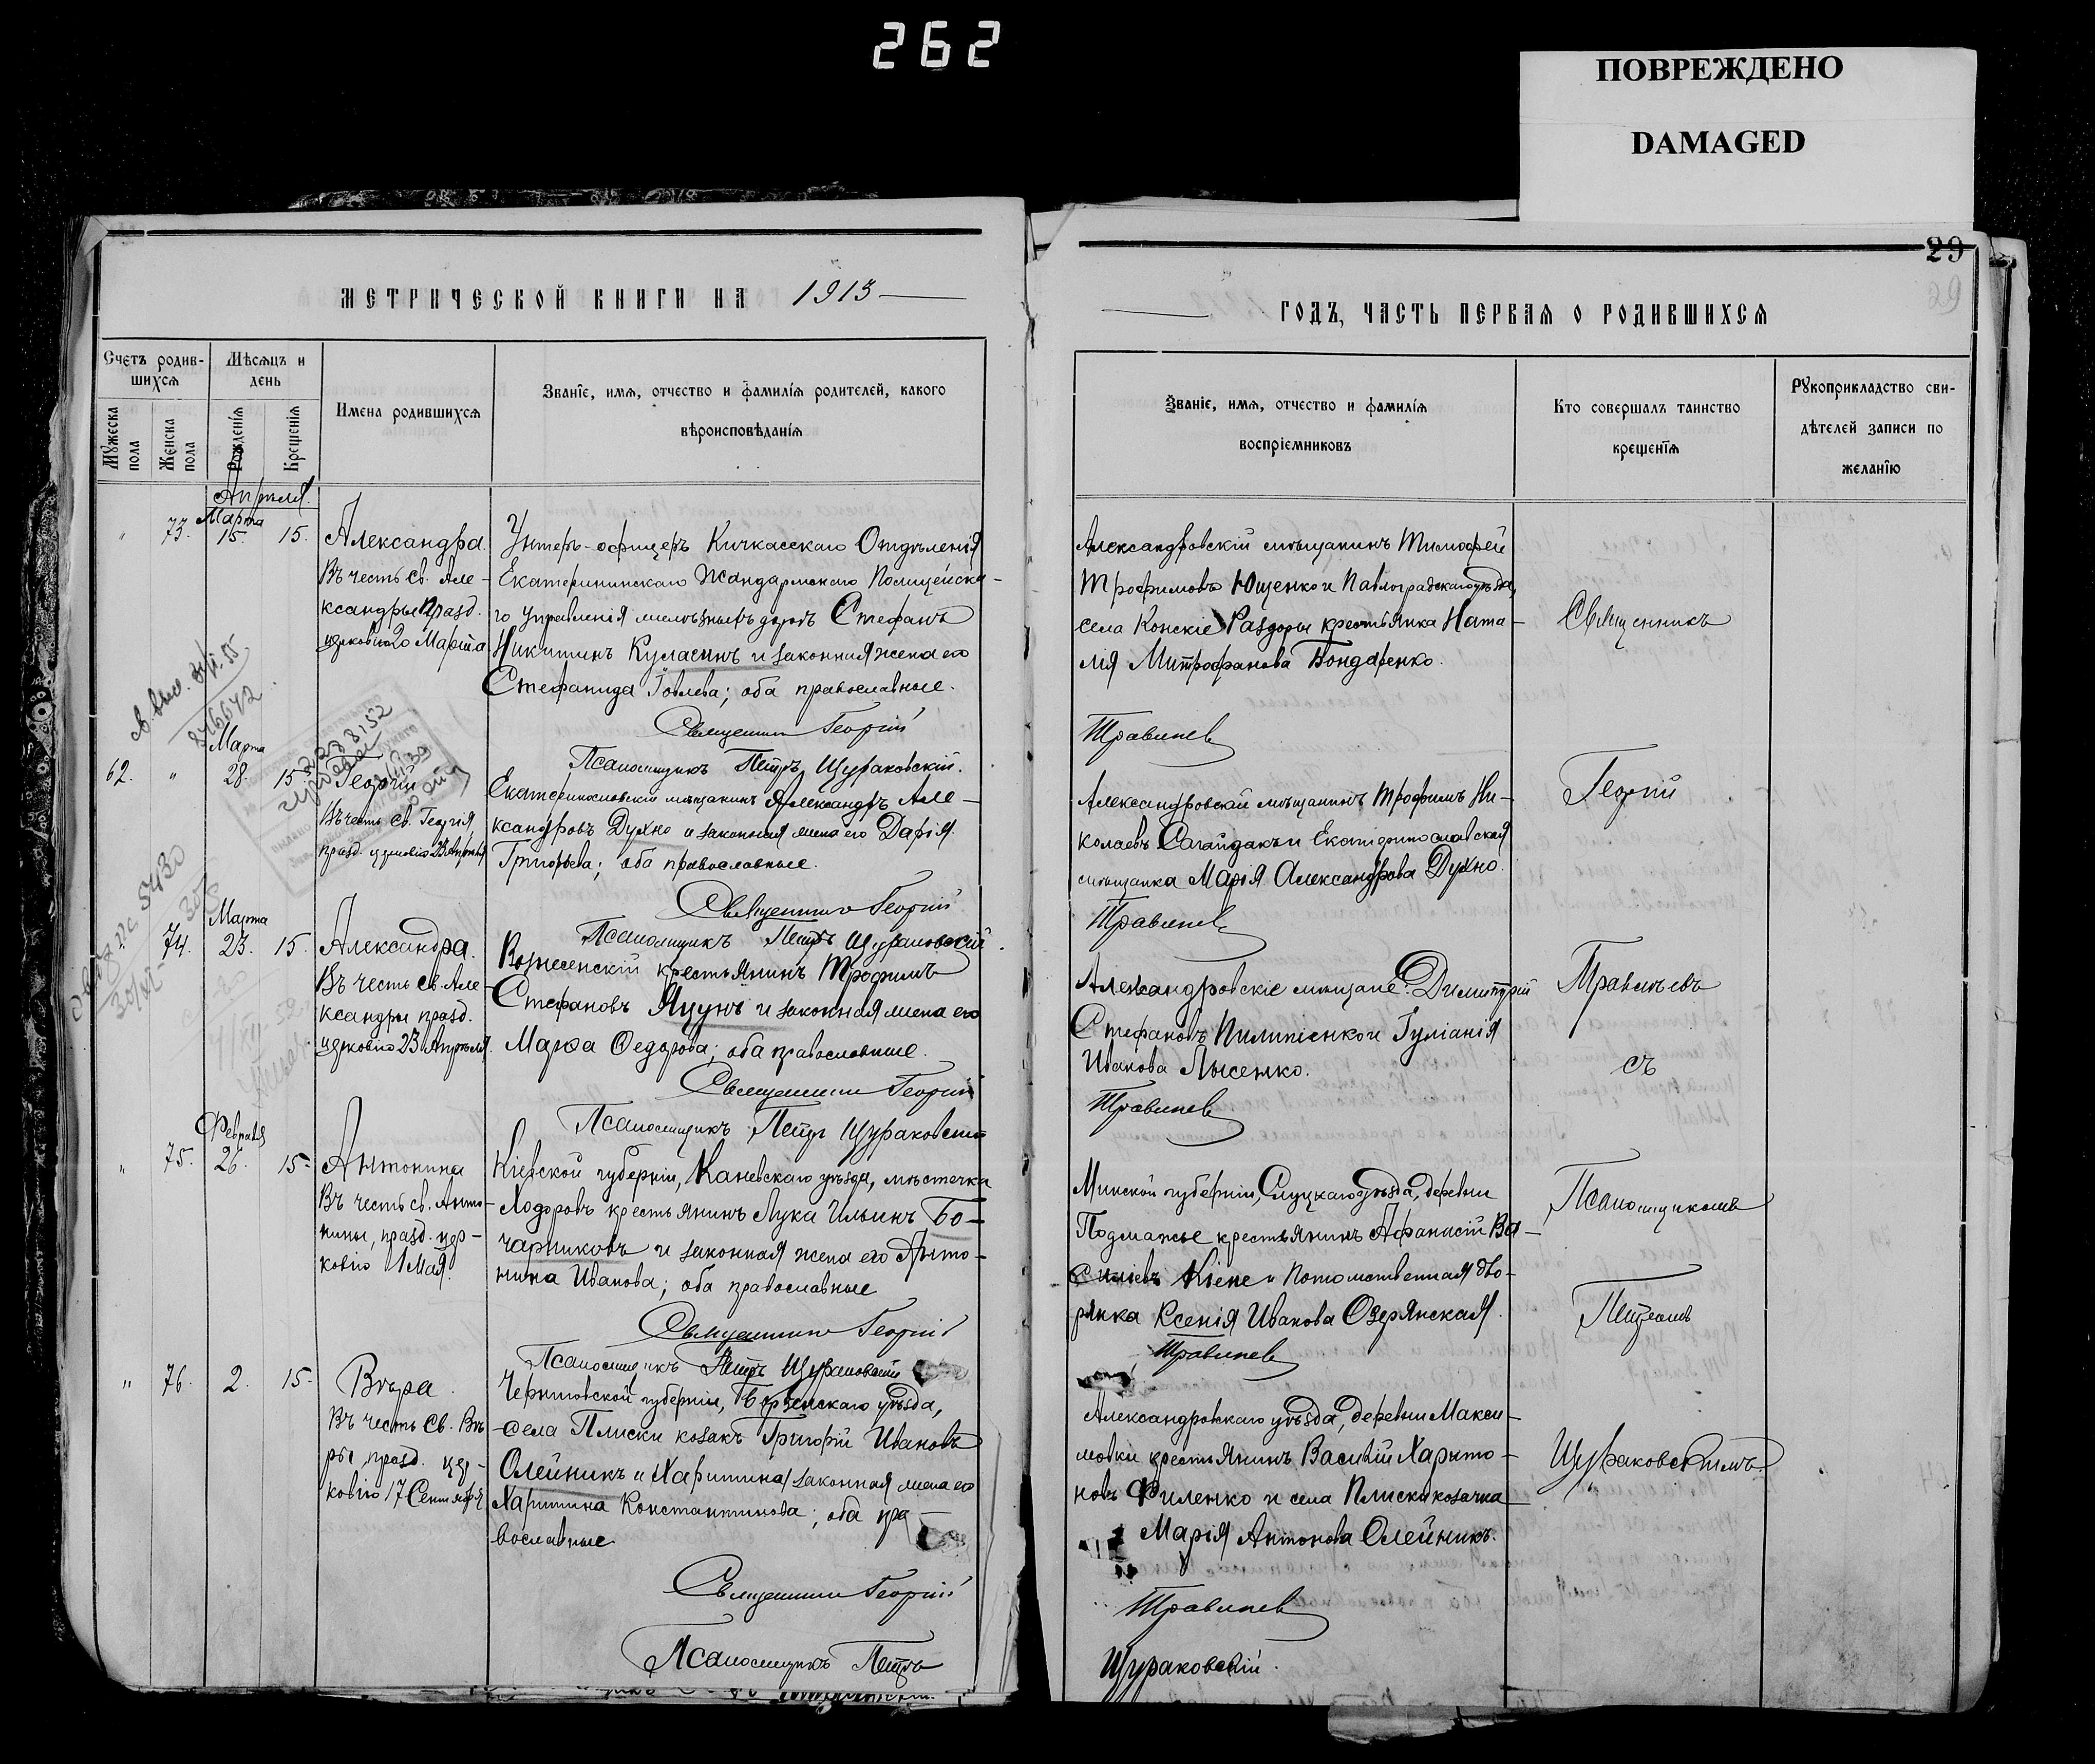 262
ПОВРЕЖДЕНО
DAMAGED
МЕТРИЧЕСКОЙ КНИГИ НА 1913
Счетъ родив-
шихся
Мѣсяцъ и
день
Мужеска
пола
Женска
пола
Рожденія
Крещенія
Имена родившихся
Званіе, имя, отчество и фамилія родителей, какого
вѣроисповѣданія
Апрѣля.
Марта
" 73. 15. 15.
Александра.
Въ честь св. Але-
ксандры празд.
церковію 20 Марта
Унтеръ-офицеръ Кичкасскаго Отдѣленія
Екатерининскаго Жандармскаго Полицейска-
го Управленія желѣзныхъ дорогъ Стефанъ
Никитинъ Куласинъ и законная жена его
Стефанида Іовлева; оба православные.
Священникъ Георгій
Псаломщикъ Петръ Щураковскій.
Марта
62. " 28. 15.
Георгій
Въ честь св. Георгія,
празд. церковію 23 Апрѣля
Екатеринославскій мѣщанинъ Александръ Але-
ксандровъ Духно и законная жена его Дарія
Григорьева; оба православные.
Священникъ Георгій
Псаломщикъ Петръ Щураковскій.
Марта
74. 23. 15.
Александра.
Въ честь св. Але-
ксандры празд.
церковію 23 Апрѣля.
Вознесенскій крестьянинъ Трофимъ
Стефановъ Яцунъ и законная жена его
Марѳа Ѳедорова; оба православные.
Священникъ Георгій
Псаломщикъ Петръ Щураковскій
Февраля
" 75. 26. 15.
Антонина
Въ честь св. Анто-
нины, празд. цер-
ковію 1 Мая.
Кіевской губерніи, Каневскаго уѣзда, мѣстечка
Ходоровъ крестьянинъ Лука Ильинъ Бо-
чарниковъ и законная жена его Анто-
нина Иванова; оба православные
Священникъ Георгій
Псаломщикъ Петръ Щураковскій
" 76. 2. 15.
Вѣра.
Въ честь св. Вѣ-
ры празд. цер-
ковію 17 Сентября
Черниговской губерніи, Борзенскаго уѣзда,
села Плиски козакъ Григорій Ивановъ
Олейникъ и Харитина законная жена его
Харитина Константинова; оба пра-
вославные
Священникъ Георгій
Псаломщикъ Петръ
29
29
ГОДЪ, ЧАСТЬ ПЕРВАЯ О РОДИВШИХСЯ
Званіе, имя, отчество и фамилія
воспріемниковъ
Кто совершалъ таинство
крещенія
Рукоприкладство сви-
дѣтелей записи по
желанію
Александровскій мѣщанинъ Тимофей
Трофимовъ Ющенко и Павлоградскаго уѣзда,
села Конскіе Раздоры крестьянка Ната-
лія Митрофанова Бондаренко.
Травинев
Александровскій мѣщанинъ Трофимъ Ни-
колаевъ Сагайдакъ и Екатеринославская
мѣщанка Марія Александрова Духно.
Травинев
Александровскіе мѣщане: Димитрій
Стефановъ Пилипенко и Іуліанія
Иванова Лысенко.
Травинев
Минской губерніи, Слуцкаго уѣзда, деревни
крестьянинъ Афанасій Ва-
силіевъ и потомственная дво-
рянка Ксенія Иванова Озерянская.
Травинев
Александровскаго уѣзда, деревни Макси-
мовки крестьянинъ Василій Харито-
новъ Филенко и села Плиски козачка
Марія Антонова Олейникъ.
Травинев
Щураковскій.
Священникъ
Георгій
Съ
Псаломщикомъ
Петромъ
Щураковскимъ.